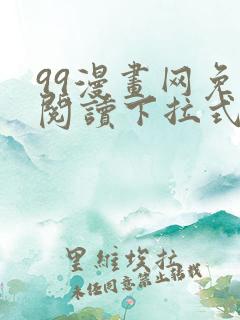 99漫畫网免
閱讀下拉式
里維埃拉
未經同意禁止轉載